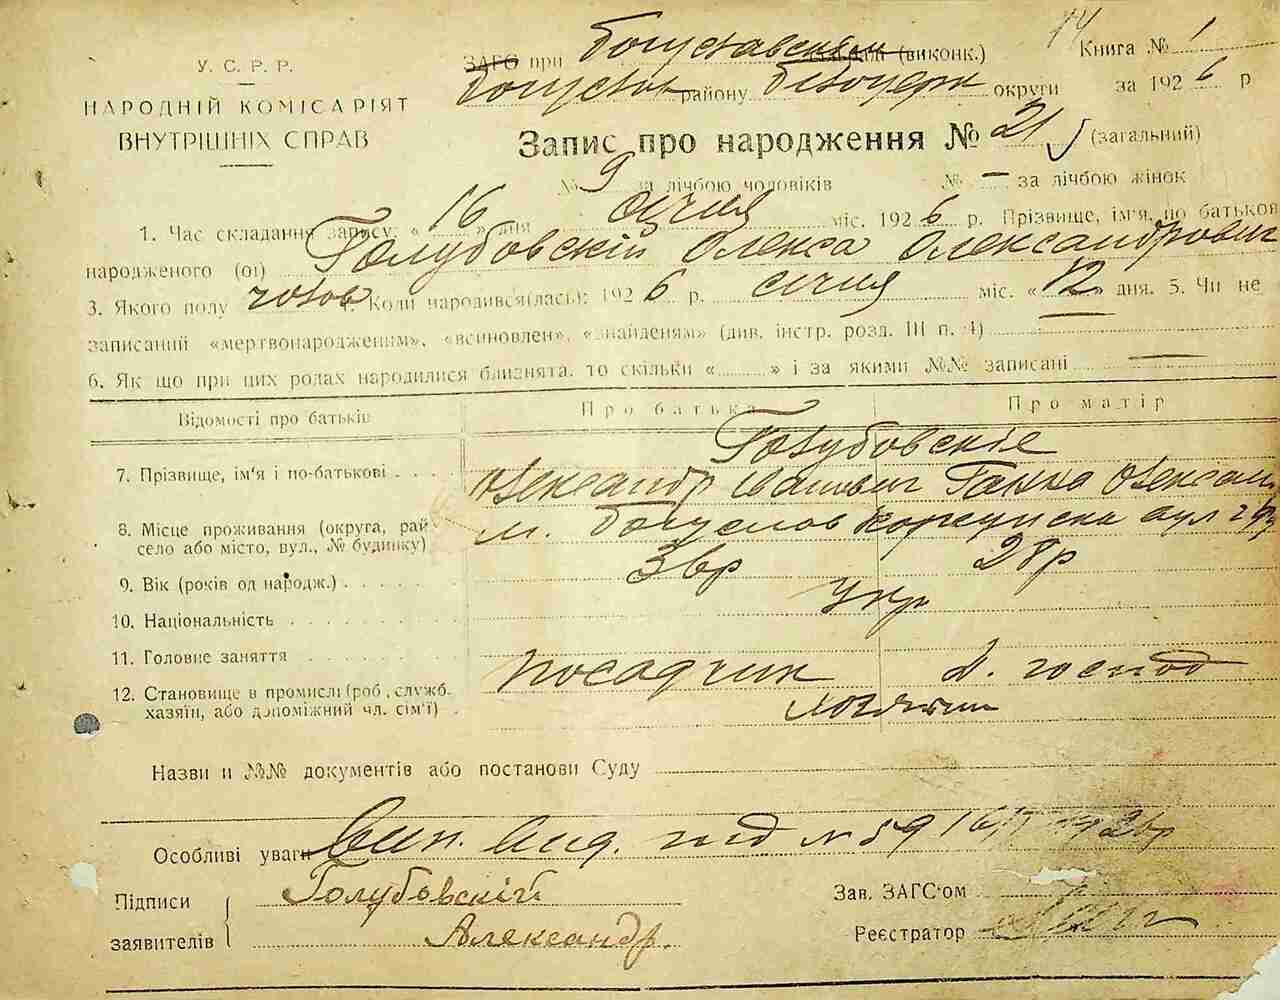 У. С. Р. Р.
НАРОДНІЙ КОМІСАРІЯТ
ВНУТРІШНІХ СПРАВ
14
ЗАГС при Богуславським (виконк.)
Книга № 1
Богуславськ району Білоцерк округи за 1926 р
Запис про народження № 21 (загальний)
№ 9 за лічбою чоловіків № — за лічбою жінок
1. Час складання запису: «16» дня січня міс. 1926 р. Прізвище, ім'я, по батькові
народженого (ої) Голубовскій Олекса Олександрович
3. Якого полу чолов 4. Коли народився(лась): 1926 р. січня міс. «12» дня. 5. Чи не
записаний «мертвонародженим», «всиновлен», «знайденям» (див. інстр. розд. III п. 4)
6. Як що при цих родах народилися близнята, то скільки «...» і за якими №№ записані —
Відомості про батьків Про батька Про матір
7. Прізвище, ім'я і по-батькові Голубовскіє
Олександр Іванович Ганна Олексан
8. Місце проживання (округа, рай
село або місто, вул., № будинку) м. Богуслав Корсунська вул
9. Вік (років од народж.) 28р
10. Національність Укр
11. Головне заняття
12. Становище в промислі (роб., служб.
хазяїн, або допоміжний чл. сім'ї)
Назви и №№ документів або постанови Суду
Особліві уваги Вип. Вид. под № 59 16/I 1926р
Підписи
заявителів
Голубовскій
Александр.
Зав. ЗАГС'ом
Реєстратор